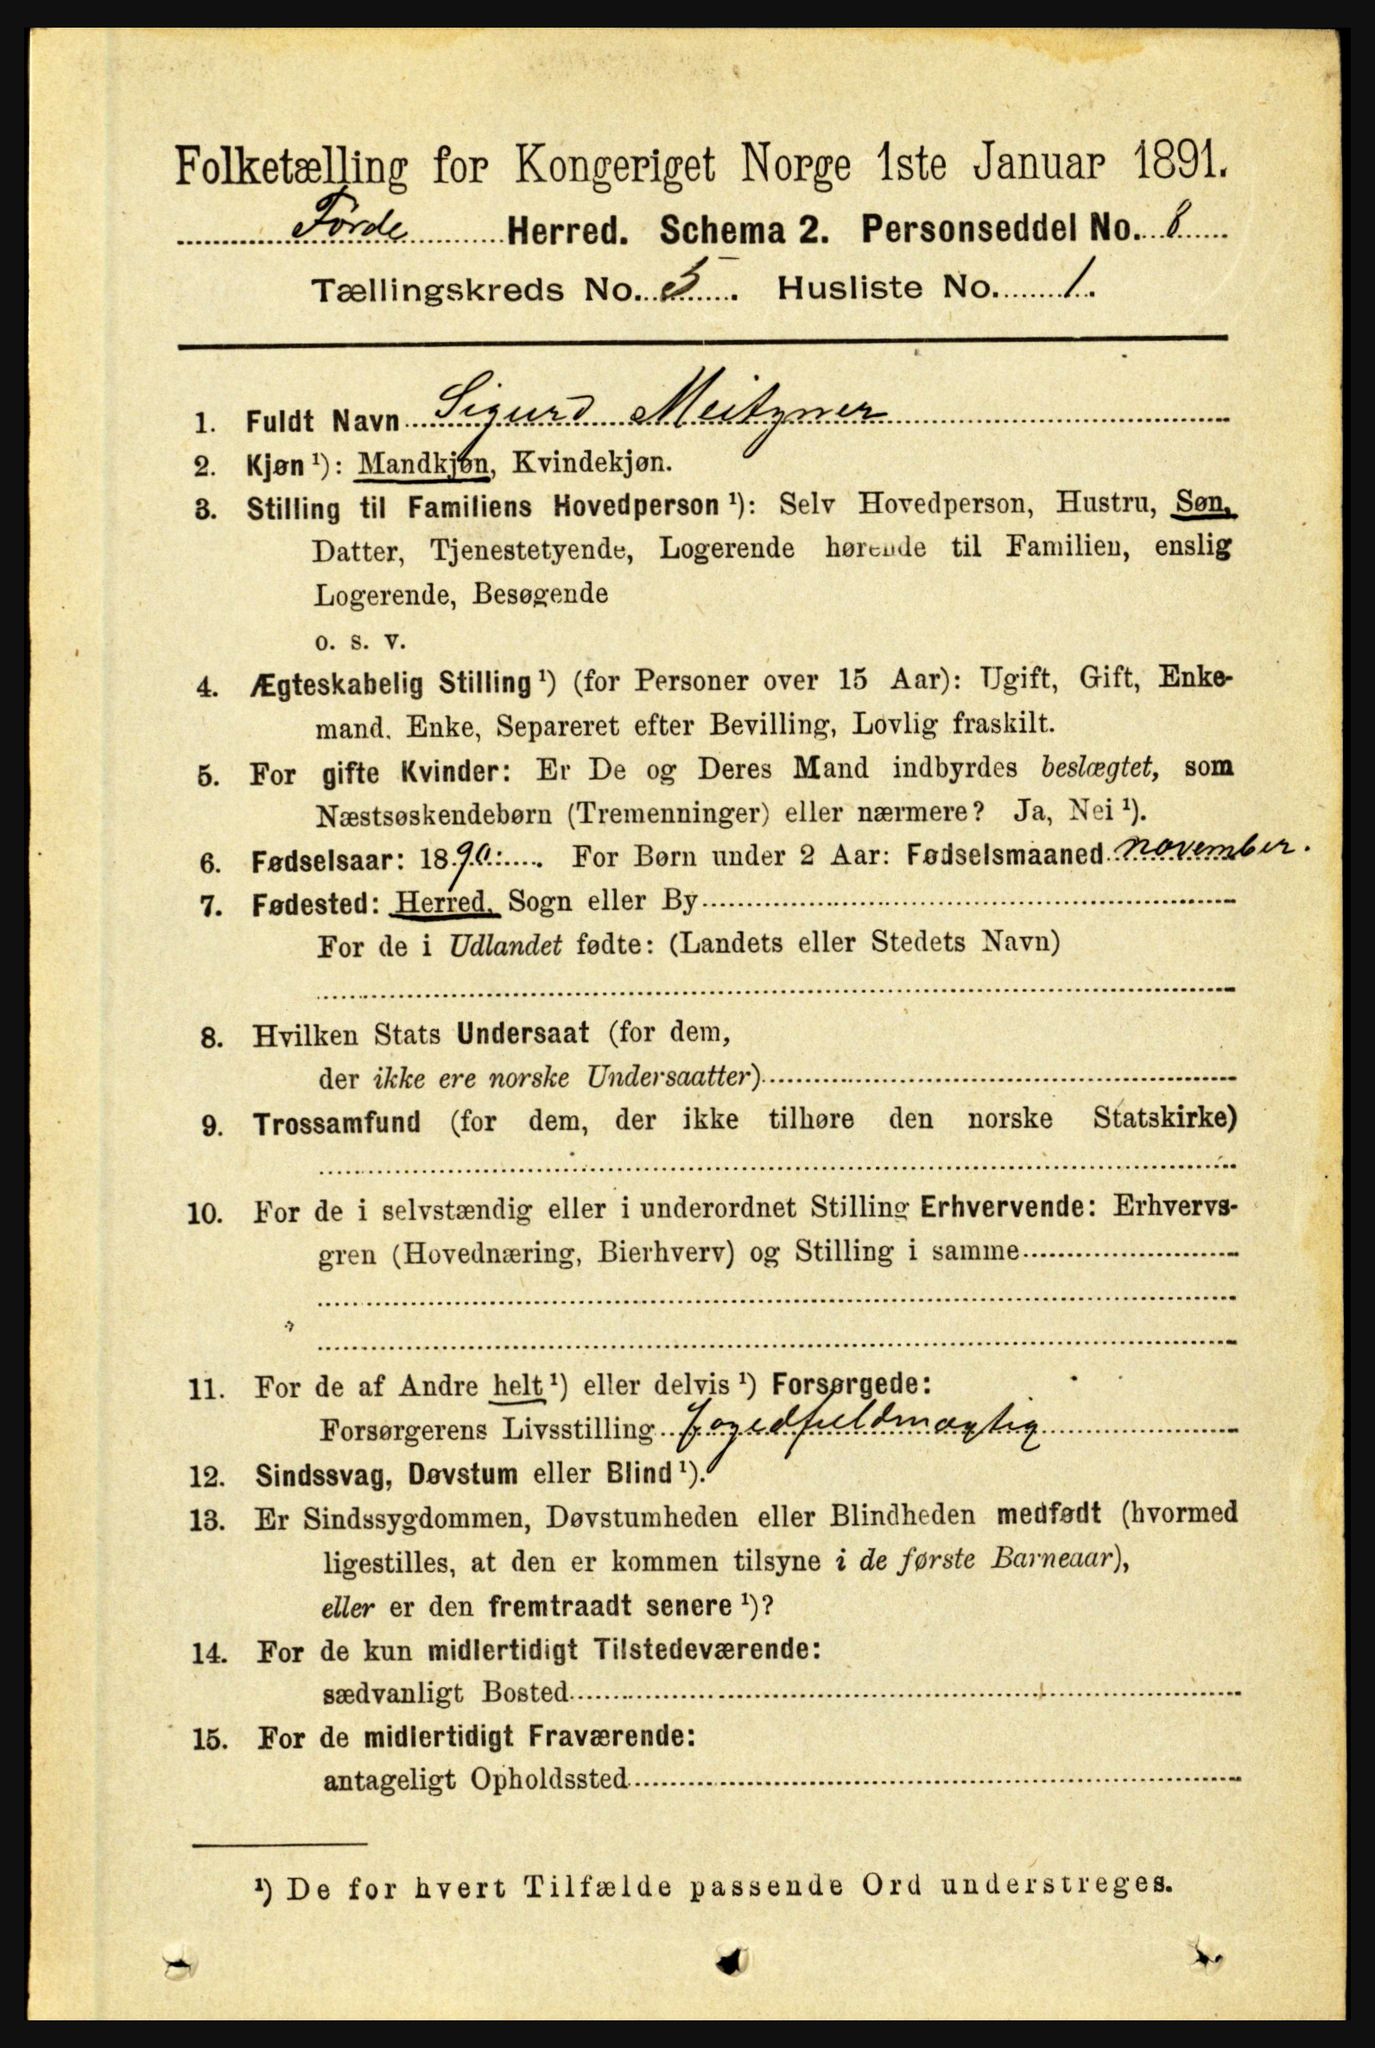 Folketælling for Kongeriget Norge 1ste Januar 1891.
Førde Herred. Schema 2. Personseddel No. 8
Tællingskreds No. 5. Husliste No. 1.
1. Fuldt Navn Sigurd Meitzner
2. Kjøn ¹): Mandkjøn, Kvindekjøn.
3. Stilling til Familiens Hovedperson ¹): Selv Hovedperson, Hustru, Søn,
Datter, Tjenestetyende, Logerende hørende til Familien, enslig
Logerende, Besøgende
o. s. v.
4. Ægteskabelig Stilling ¹) (for Personer over 15 Aar): Ugift, Gift, Enke-
mand, Enke, Separeret efter Bevilling, Lovlig fraskilt.
5. For gifte Kvinder: Er De og Deres Mand indbyrdes beslægtet, som
Næstsøskendebørn (Tremenninger) eller nærmere? Ja, Nei ¹).
6. Fødselsaar: 1890. For Børn under 2 Aar: Fødselsmaaned november.
7. Fødested: Herred, Sogn eller By
For de i Udlandet fødte: (Landets eller Stedets Navn)
8. Hvilken Stats Undersaat (for dem,
der ikke ere norske Undersaatter)
9. Trossamfund (for dem, der ikke tilhøre den norske Statskirke)
10. For de i selvstændig eller i underordnet Stilling Erhvervende: Erhvervs-
gren (Hovednæring, Bierhverv) og Stilling i samme
11. For de af Andre helt ¹) eller delvis ¹) Forsørgede:
Forsørgerens Livsstilling fogedfuldmægtig
12. Sindssvag, Døvstum eller Blind ¹).
13. Er Sindssygdommen, Døvstumheden eller Blindheden medfødt (hvormed
ligestilles, at den er kommen tilsyne i de første Barneaar),
eller er den fremtraadt senere ¹)?
14. For de kun midlertidigt Tilstedeværende:
sædvanligt Bosted
15. For de midlertidigt Fraværende:
antageligt Opholdssted
¹) De for hvert Tilfælde passende Ord understreges.